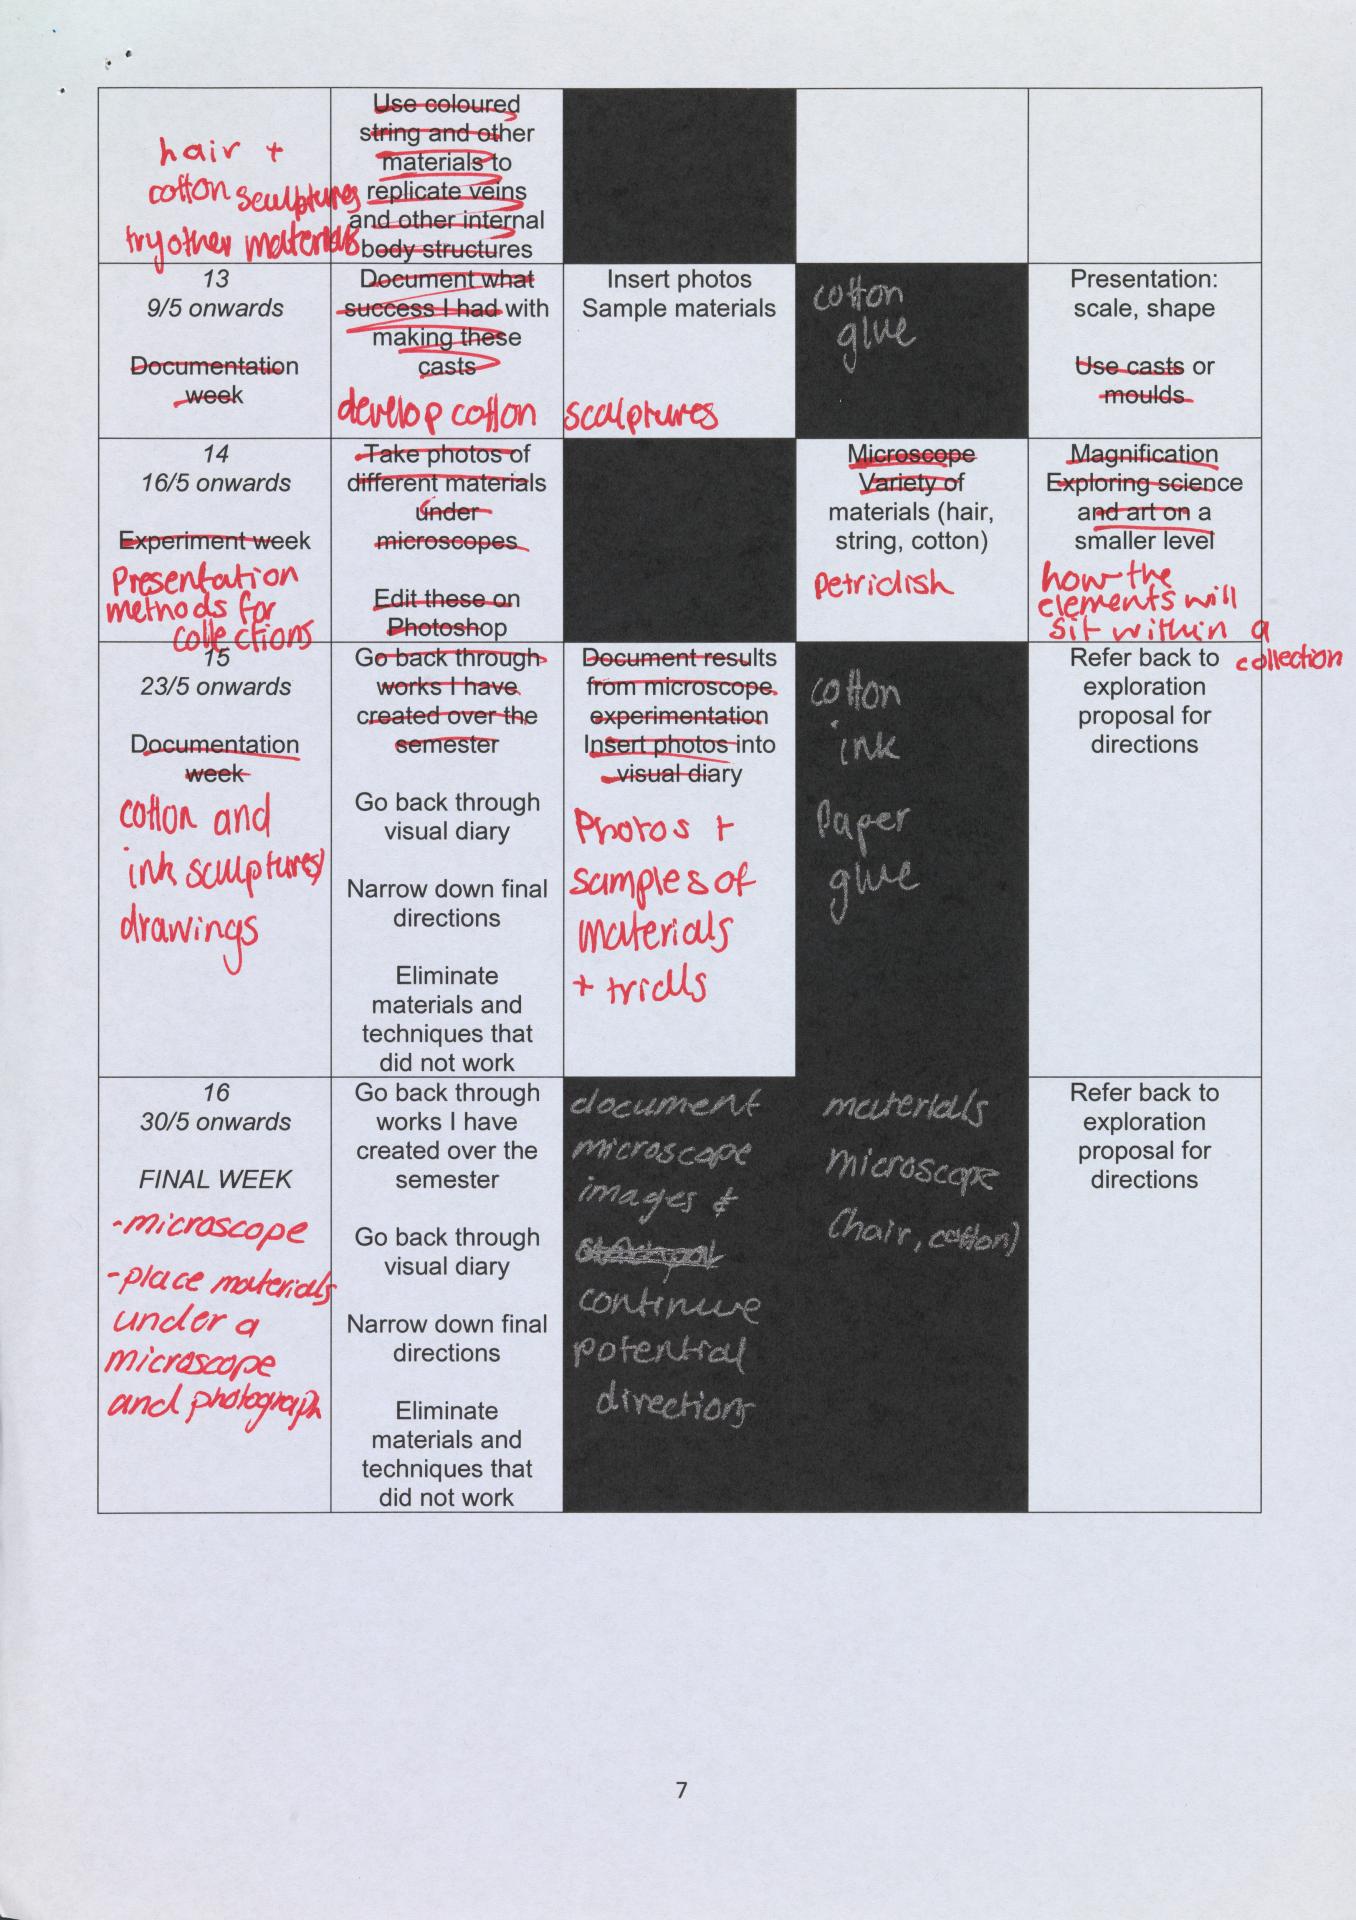 Use coloured
string and other
materials to
replicate veins
and other internal
body structures
hair +
cotton sculptures
try other materials
13
9/5 onwards
Documentation
week
Document what
success I had with
making these
casts
develop cotton sculptures
Insert photos
Sample materials
cotton
glue
Presentation:
scale, shape
Use casts or
moulds
14
16/5 onwards
Experiment week
Presentation
methods for
collections
Take photos of
different materials
under
microscopes
Edit these on
Photoshop
Microscope
Variety of
materials (hair,
string, cotton)
petridish
Magnification
Exploring science
and art on a
smaller level
how the
elements will
sit within a
collection
15
23/5 onwards
Documentation
week
cotton and
ink sculptures/
drawings
Go back through
works I have
created over the
semester
Go back through
visual diary
Narrow down final
directions
Eliminate
materials and
techniques that
did not work
Document results
from microscope
experimentation
Insert photos into
visual diary
Photos +
samples of
materials
+ trials
cotton
ink
Paper
glue
Refer back to
exploration
proposal for
directions
16
30/5 onwards
FINAL WEEK
-microscope
-place materials
under a
microscope
and photograph
Go back through
works I have
created over the
semester
Go back through
visual diary
Narrow down final
directions
Eliminate
materials and
techniques that
did not work
document
microscope
images &
continue
potential
directions
materials
microscope
(hair, cotton)
Refer back to
exploration
proposal for
directions
7